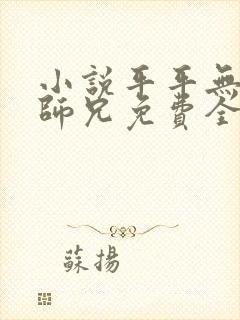 小説平平無
師兄免費全
蘇揚